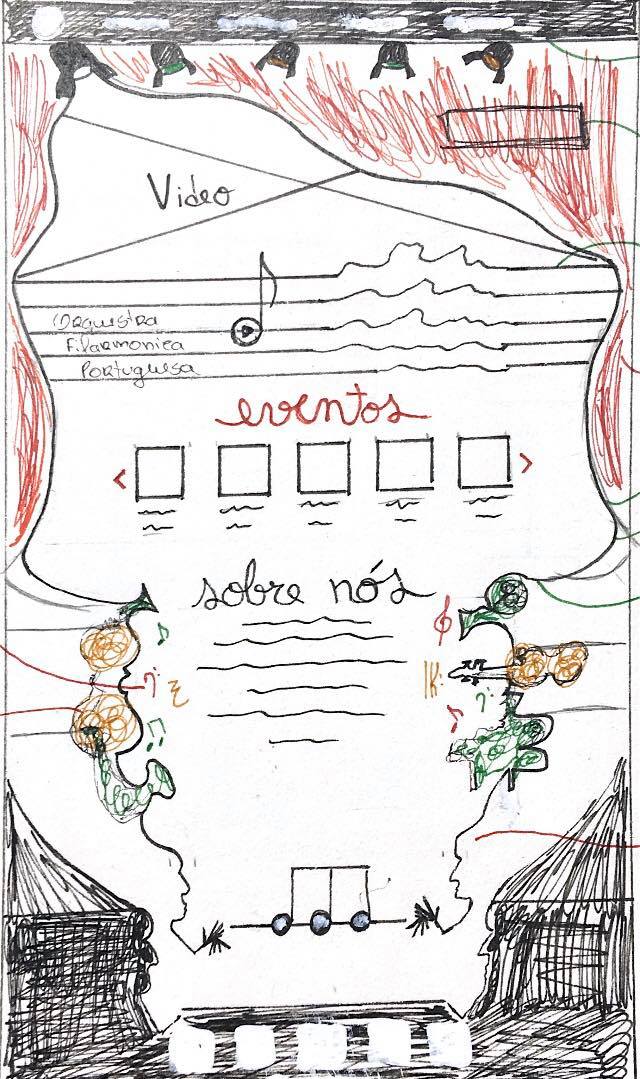 Video
Orquestra
Filarmonica
Portuguesa
eventos
sobre nós